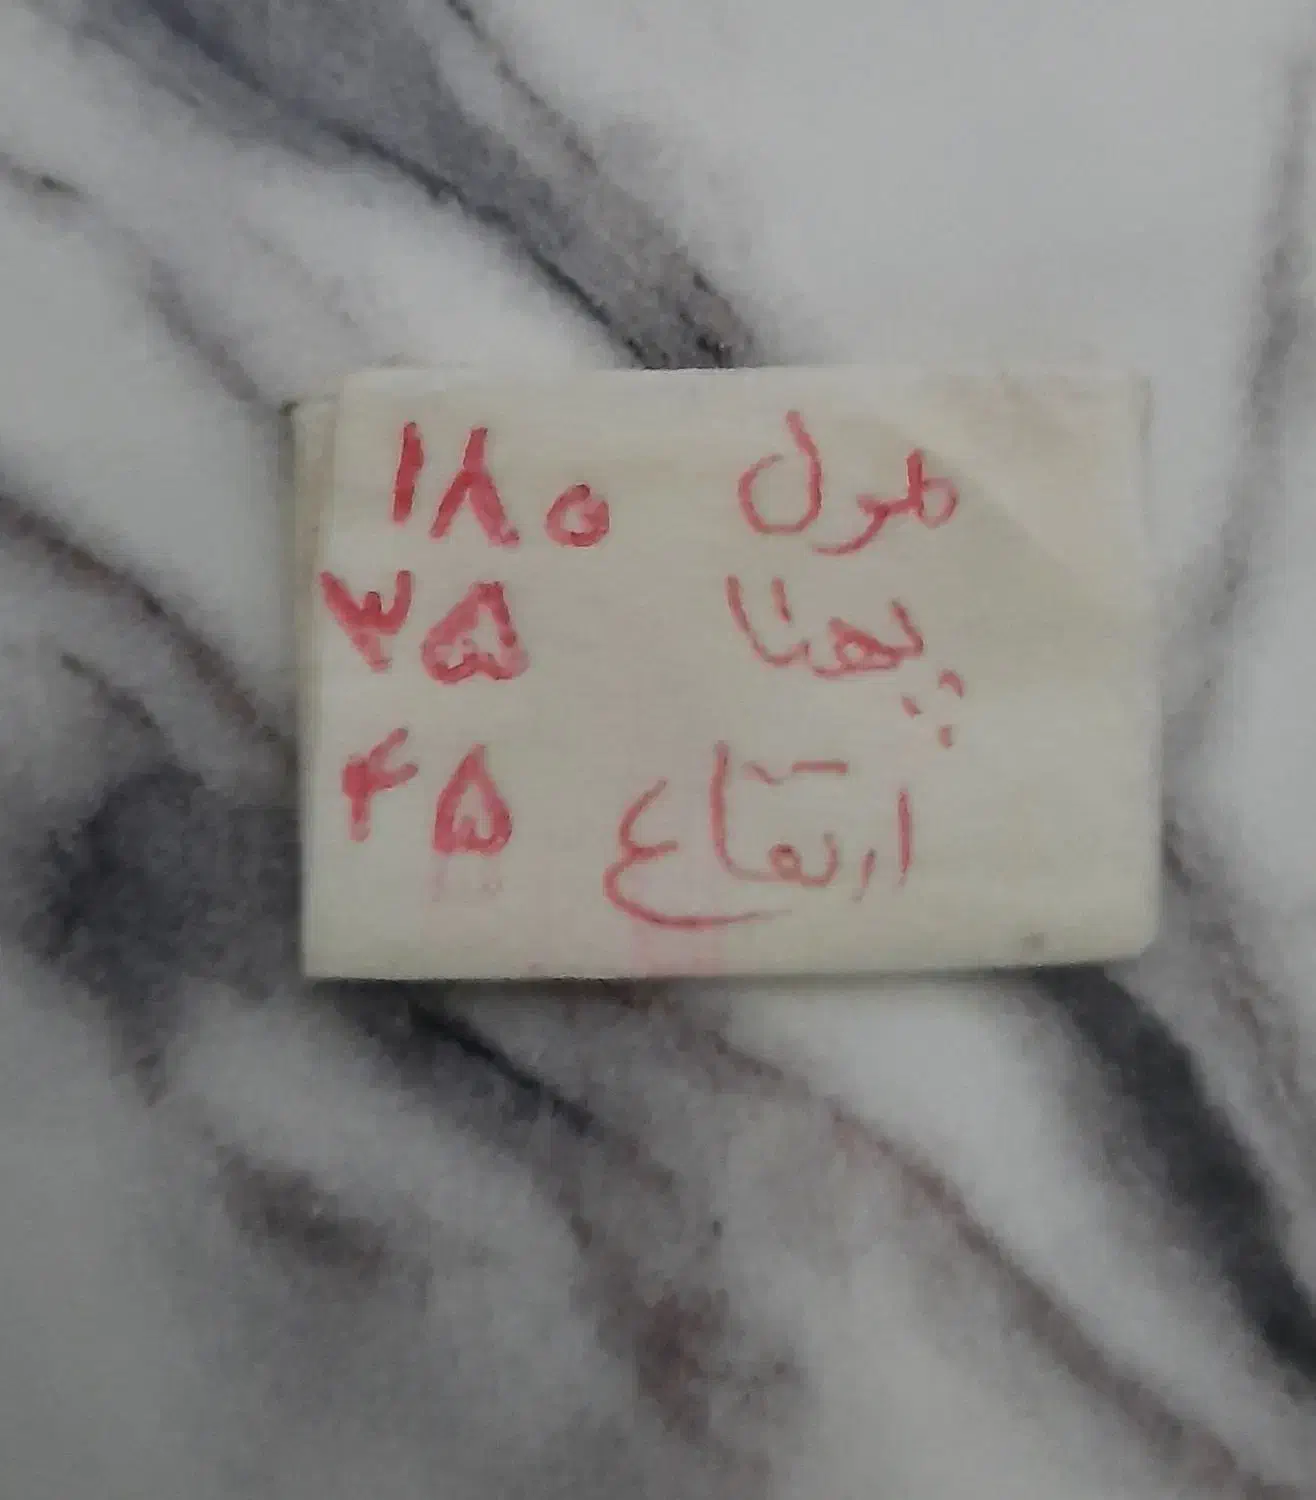 طول ۱۸۰
پهنا ۳۵
ارتفاع ۴۵